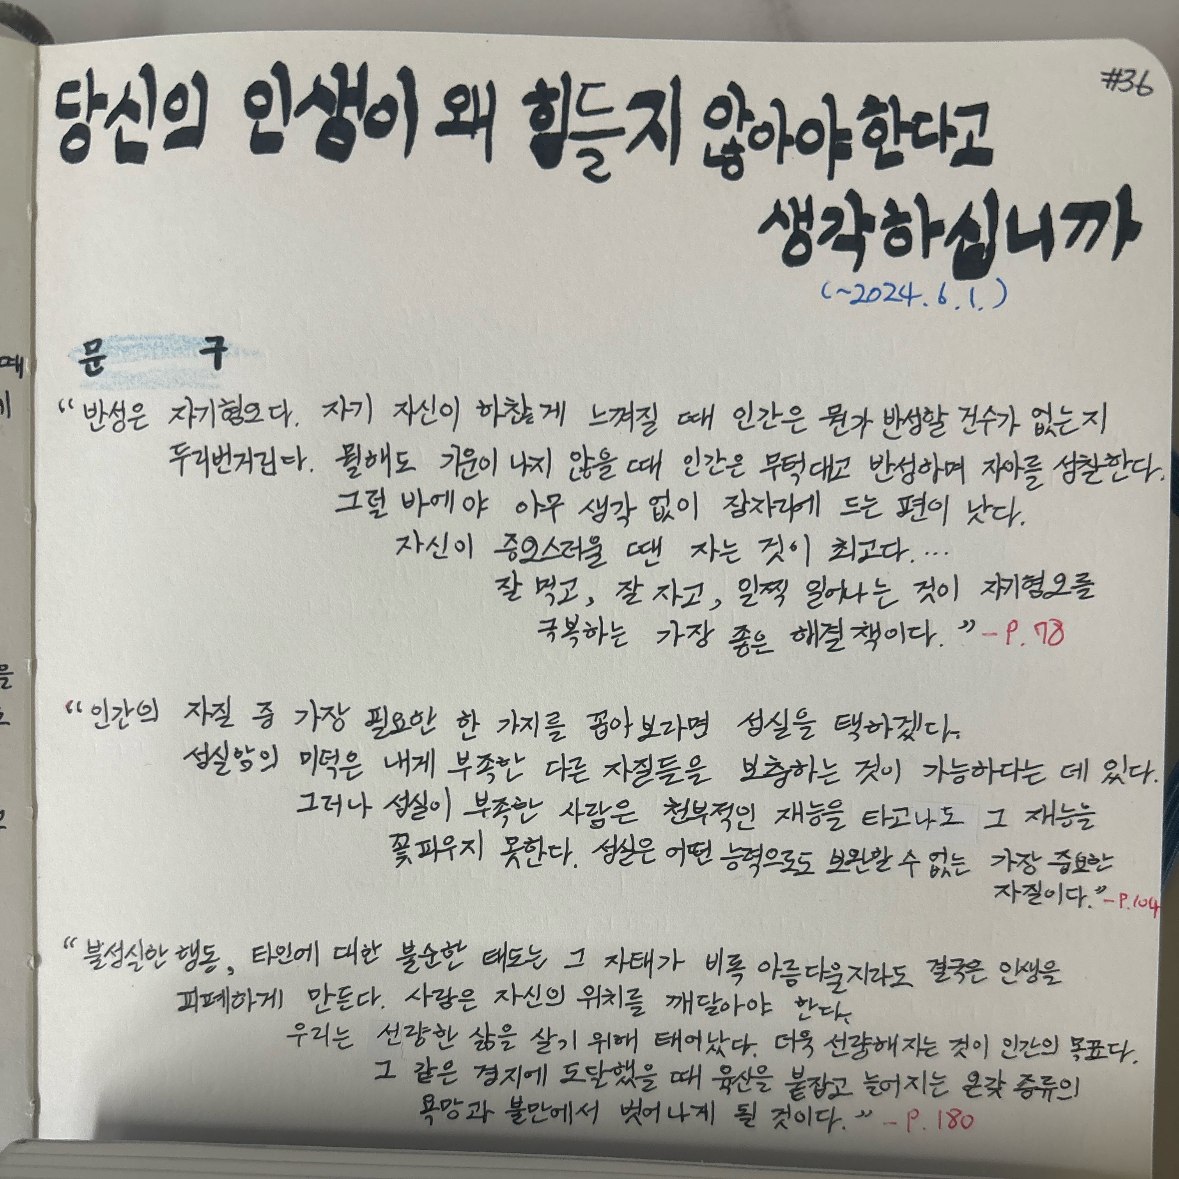 #36
당신의 인생이 왜 힘들지 않아야한다고
생각하십니까
(~2024.6.1.)
문 구
"반성은 자기혐오다. 자기 자신이 하찮게 느껴질 때 인간은 뭔가 반성할 건수가 없는지
두리번거린다. 뭘해도 기운이 나지 않을 때 인간은 무턱대고 반성하며 자아를 성찰한다.
그럴 바에야 아무 생각 없이 잠자리에 드는 편이 낫다.
자신이 증오스러울 땐 자는 것이 최고다. ...
잘 먹고, 잘 자고, 일찍 일어나는 것이 자기혐오를
극복하는 가장 좋은 해결책이다." -P.78
"인간의 자질 중 가장 필요한 한 가지를 꼽아보라면 성실을 택하겠다.
성실함의 미덕은 내게 부족한 다른 자질들을 보충하는 것이 가능하다는 데 있다.
그러나 성실이 부족한 사람은 천부적인 재능을 타고나도 그 재능을
꽃피우지 못한다. 성실은 어떤 능력으로도 보완할 수 없는 가장 중요한
자질이다." -P.104
"불성실한 행동, 타인에 대한 불순한 태도는 그 자태가 비록 아름다울지라도 결국은 인생을
피폐하게 만든다. 사람은 자신의 위치를 깨달아야 한다.
우리는 선량한 삶을 살기 위해 태어났다. 더욱 선량해지는 것이 인간의 목표다.
그 같은 경지에 도달했을 때 육신을 붙잡고 늘어지는 온갖 종류의
욕망과 불만에서 벗어나게 될 것이다." -P.180
때
게
을